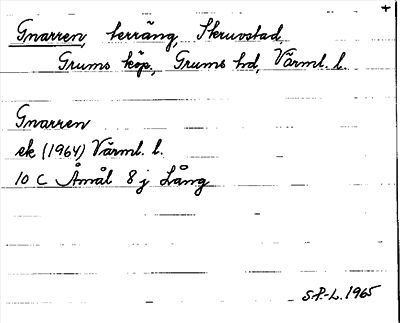 +
Gnarren, terräng, Skruvstad,
Grums köp., Grums hd, Värml. l.
Gnarren
ek (1964) Värml. l.
10 C Åmål 8 j Lång
S.P.-L. 1965